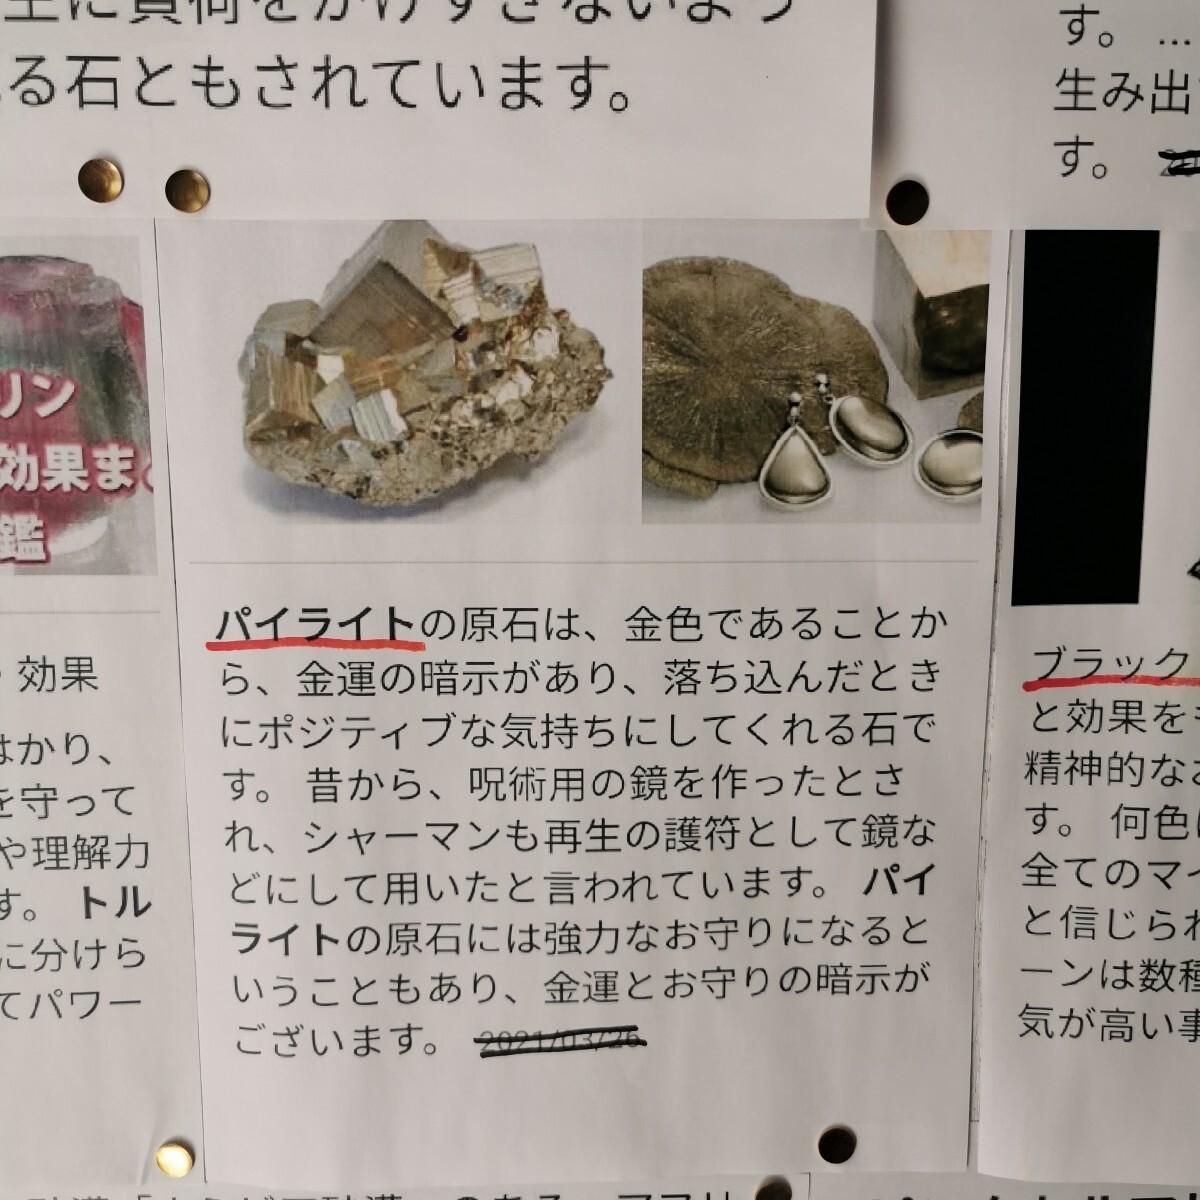 る石ともされています。
す。 …
生み出
す。
リン
効果ま
鑑
効果
はかり、
を守って
や理解力
す。 トル
に分けら
てパワー
パイライトの原石は、金色であることか
ら、金運の暗示があり、落ち込んだとき
にポジティブな気持ちにしてくれる石で
す。 昔から、呪術用の鏡を作ったとさ
れ、シャーマンも再生の護符として鏡な
どにして用いたと言われています。 パイ
ライトの原石には強力なお守りになると
いうこともあり、金運とお守りの暗示が
ございます。 2021/03/26
ブラック
と効果を
精神的な
す。 何色
全てのマイ
と信じられ
ーンは数種
気が高い事